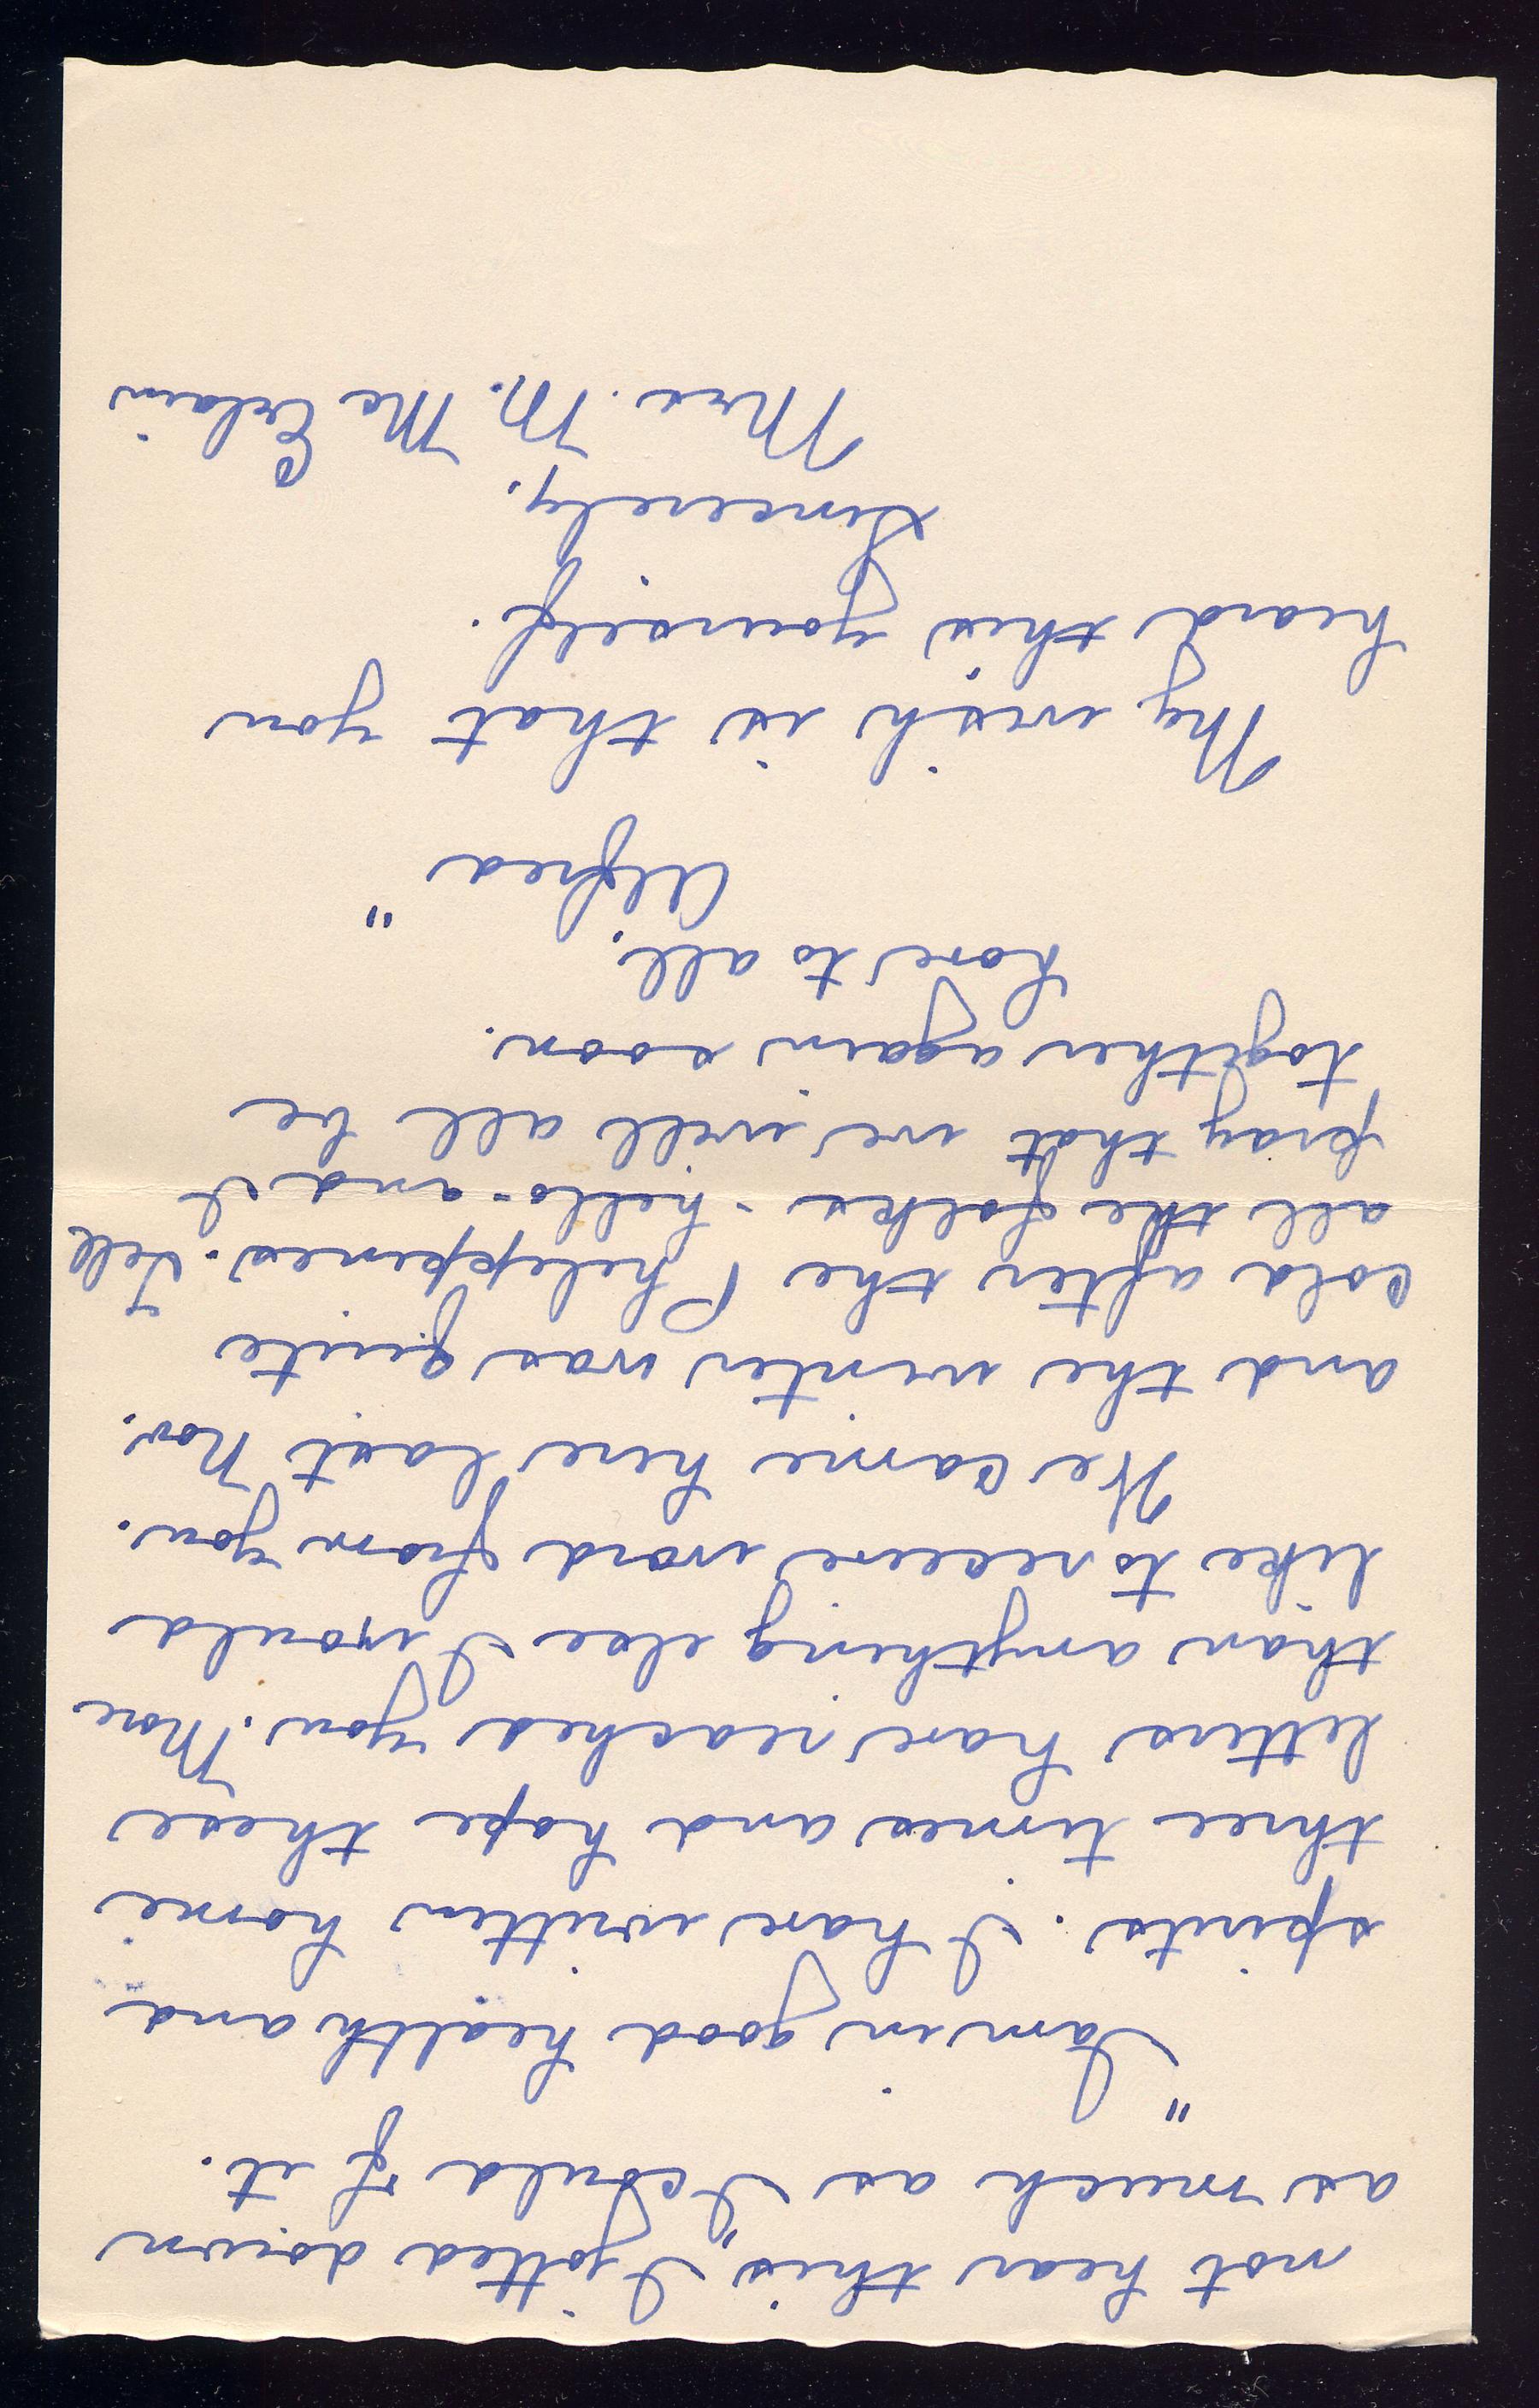 not hear this, I jotted down
as much as I could of it.
"I am in good health and
spirits. I have written home
three times and hope these
letters have reached you. More
than anything else I would
like to receive word from you.
We came here last Nov.
and the winter was quite
cold after the Philippines. Tell
all the folks - hello - and I
pray that we will all be
together again soon.
Love to all,
Alfred"
My wish is that you
heard this yourself.
Sincerely,
Mrs. M. Mc Erlain